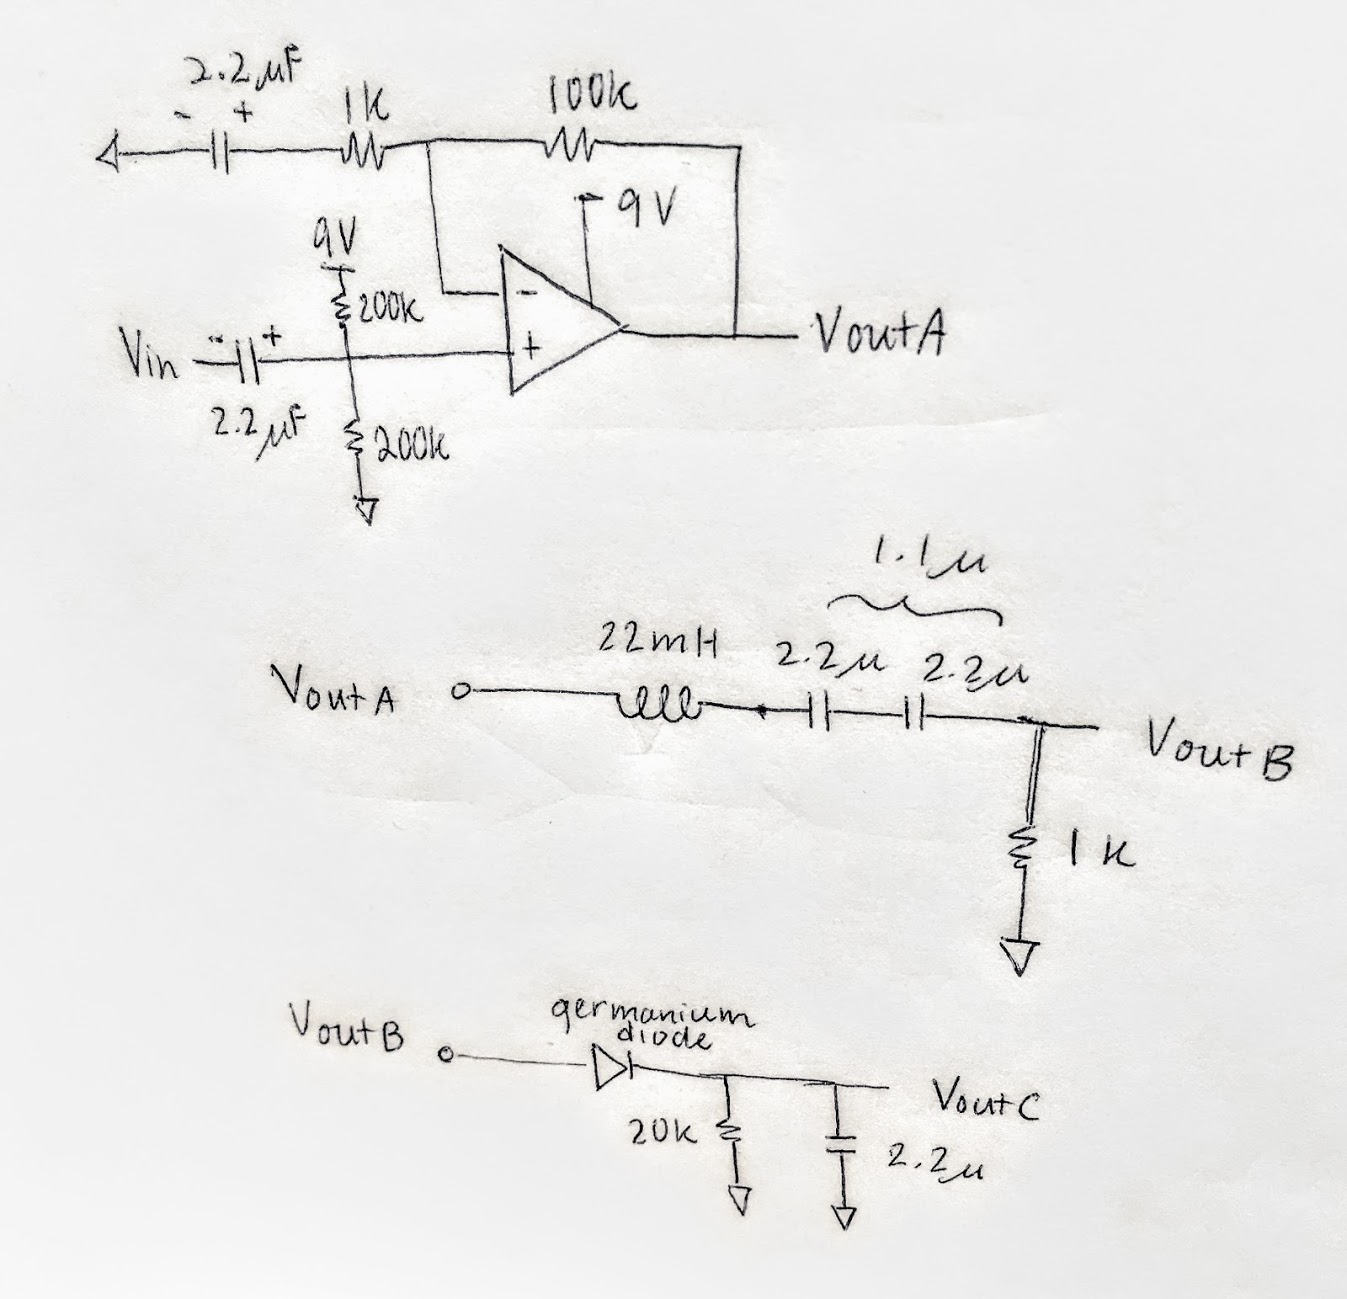 2.2µF
- +
1k
100k
9V
9V
200k
-
+
Vin
- +
2.2µF
200k
VoutA
1.1µ
22mH
2.2µ
2.2µ
VoutA
VoutB
1k
VoutB
germanium
diode
VoutC
20k
2.2µ